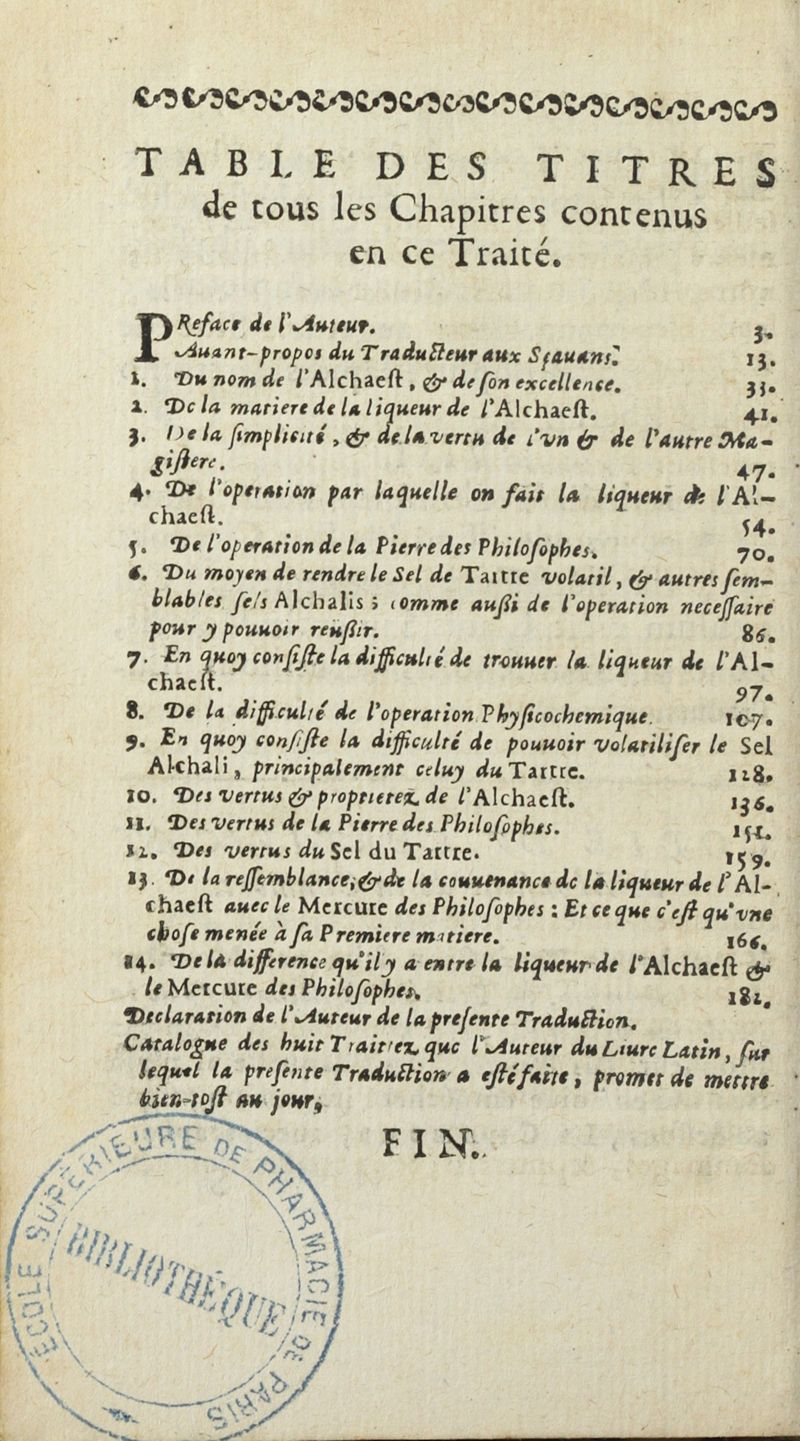 TABLE DES TITRES
de tous les Chapitres contenus
en ce Traité.
PReface de l'Auteur. 3.
Auant-propos du Traducteur aux Sçauans. 13.
1. Du nom de l'Alchaeſt, & de ſon excellence. 33.
2. De la matiere de la liqueur de l'Alchaeſt. 41.
3. De la ſimplicité, & de la vertu de l'vn & de l'autre Ma-
giſtere. 47.
4. De l'operation par laquelle on fait la liqueur de l'Al-
chaeſt. 54.
5. De l'operation de la Pierre des Philoſophes. 70.
6. Du moyen de rendre le Sel de Tartre volatil, & autres ſem-
blables ſels Alchalis; comme auſſi de l'operation neceſſaire
pour y pouuoir reüſſir. 86.
7. En quoy conſiſte la difficulté de trouuer la liqueur de l'Al-
chaeſt. 97.
8. De la difficulté de l'operation Phyſicochemique. 107.
9. En quoy conſiſte la difficulté de pouuoir volatiliſer le Sel
Alchali, principalement celuy du Tartre. 128.
10. Des vertus & proprietez de l'Alchaeſt. 136.
11. Des vertus de la Pierre des Philoſophes. 151.
12. Des vertus du Sel du Tartre. 159.
13. De la reſſemblance, & de la conuenance de la liqueur de l'Al-
chaeſt auec le Mercure des Philoſophes: Et ce que c'eſt qu'vne
choſe menée à ſa Premiere matiere. 166.
14. De la difference qu'il y a entre la liqueur de l'Alchaeſt &
le Mercure des Philoſophes. 182.
Declaration de l'Auteur de la preſente Traduction.
Catalogue des huit Traitez, que l'Auteur du Liure Latin, ſur
lequel la preſente Traduction a eſté faite, promet de mettre
bien-toſt au jour,
FIN.
ÉCOLE SUPÉRIEURE DE PHARMACIE DE PARIS
BIBLIOTHÈQUE